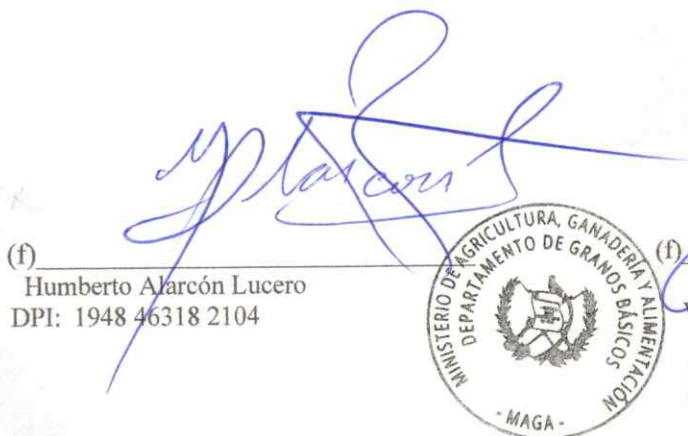 Alarcon
(f)
Humberto Alarcón Lucero
DPI: 1948 46318 2104
MINISTERIO DE AGRICULTURA, GANADERÍA Y ALIMENTACIÓN
DEPARTAMENTO DE GRANOS BÁSICOS
- MAGA -
(f)